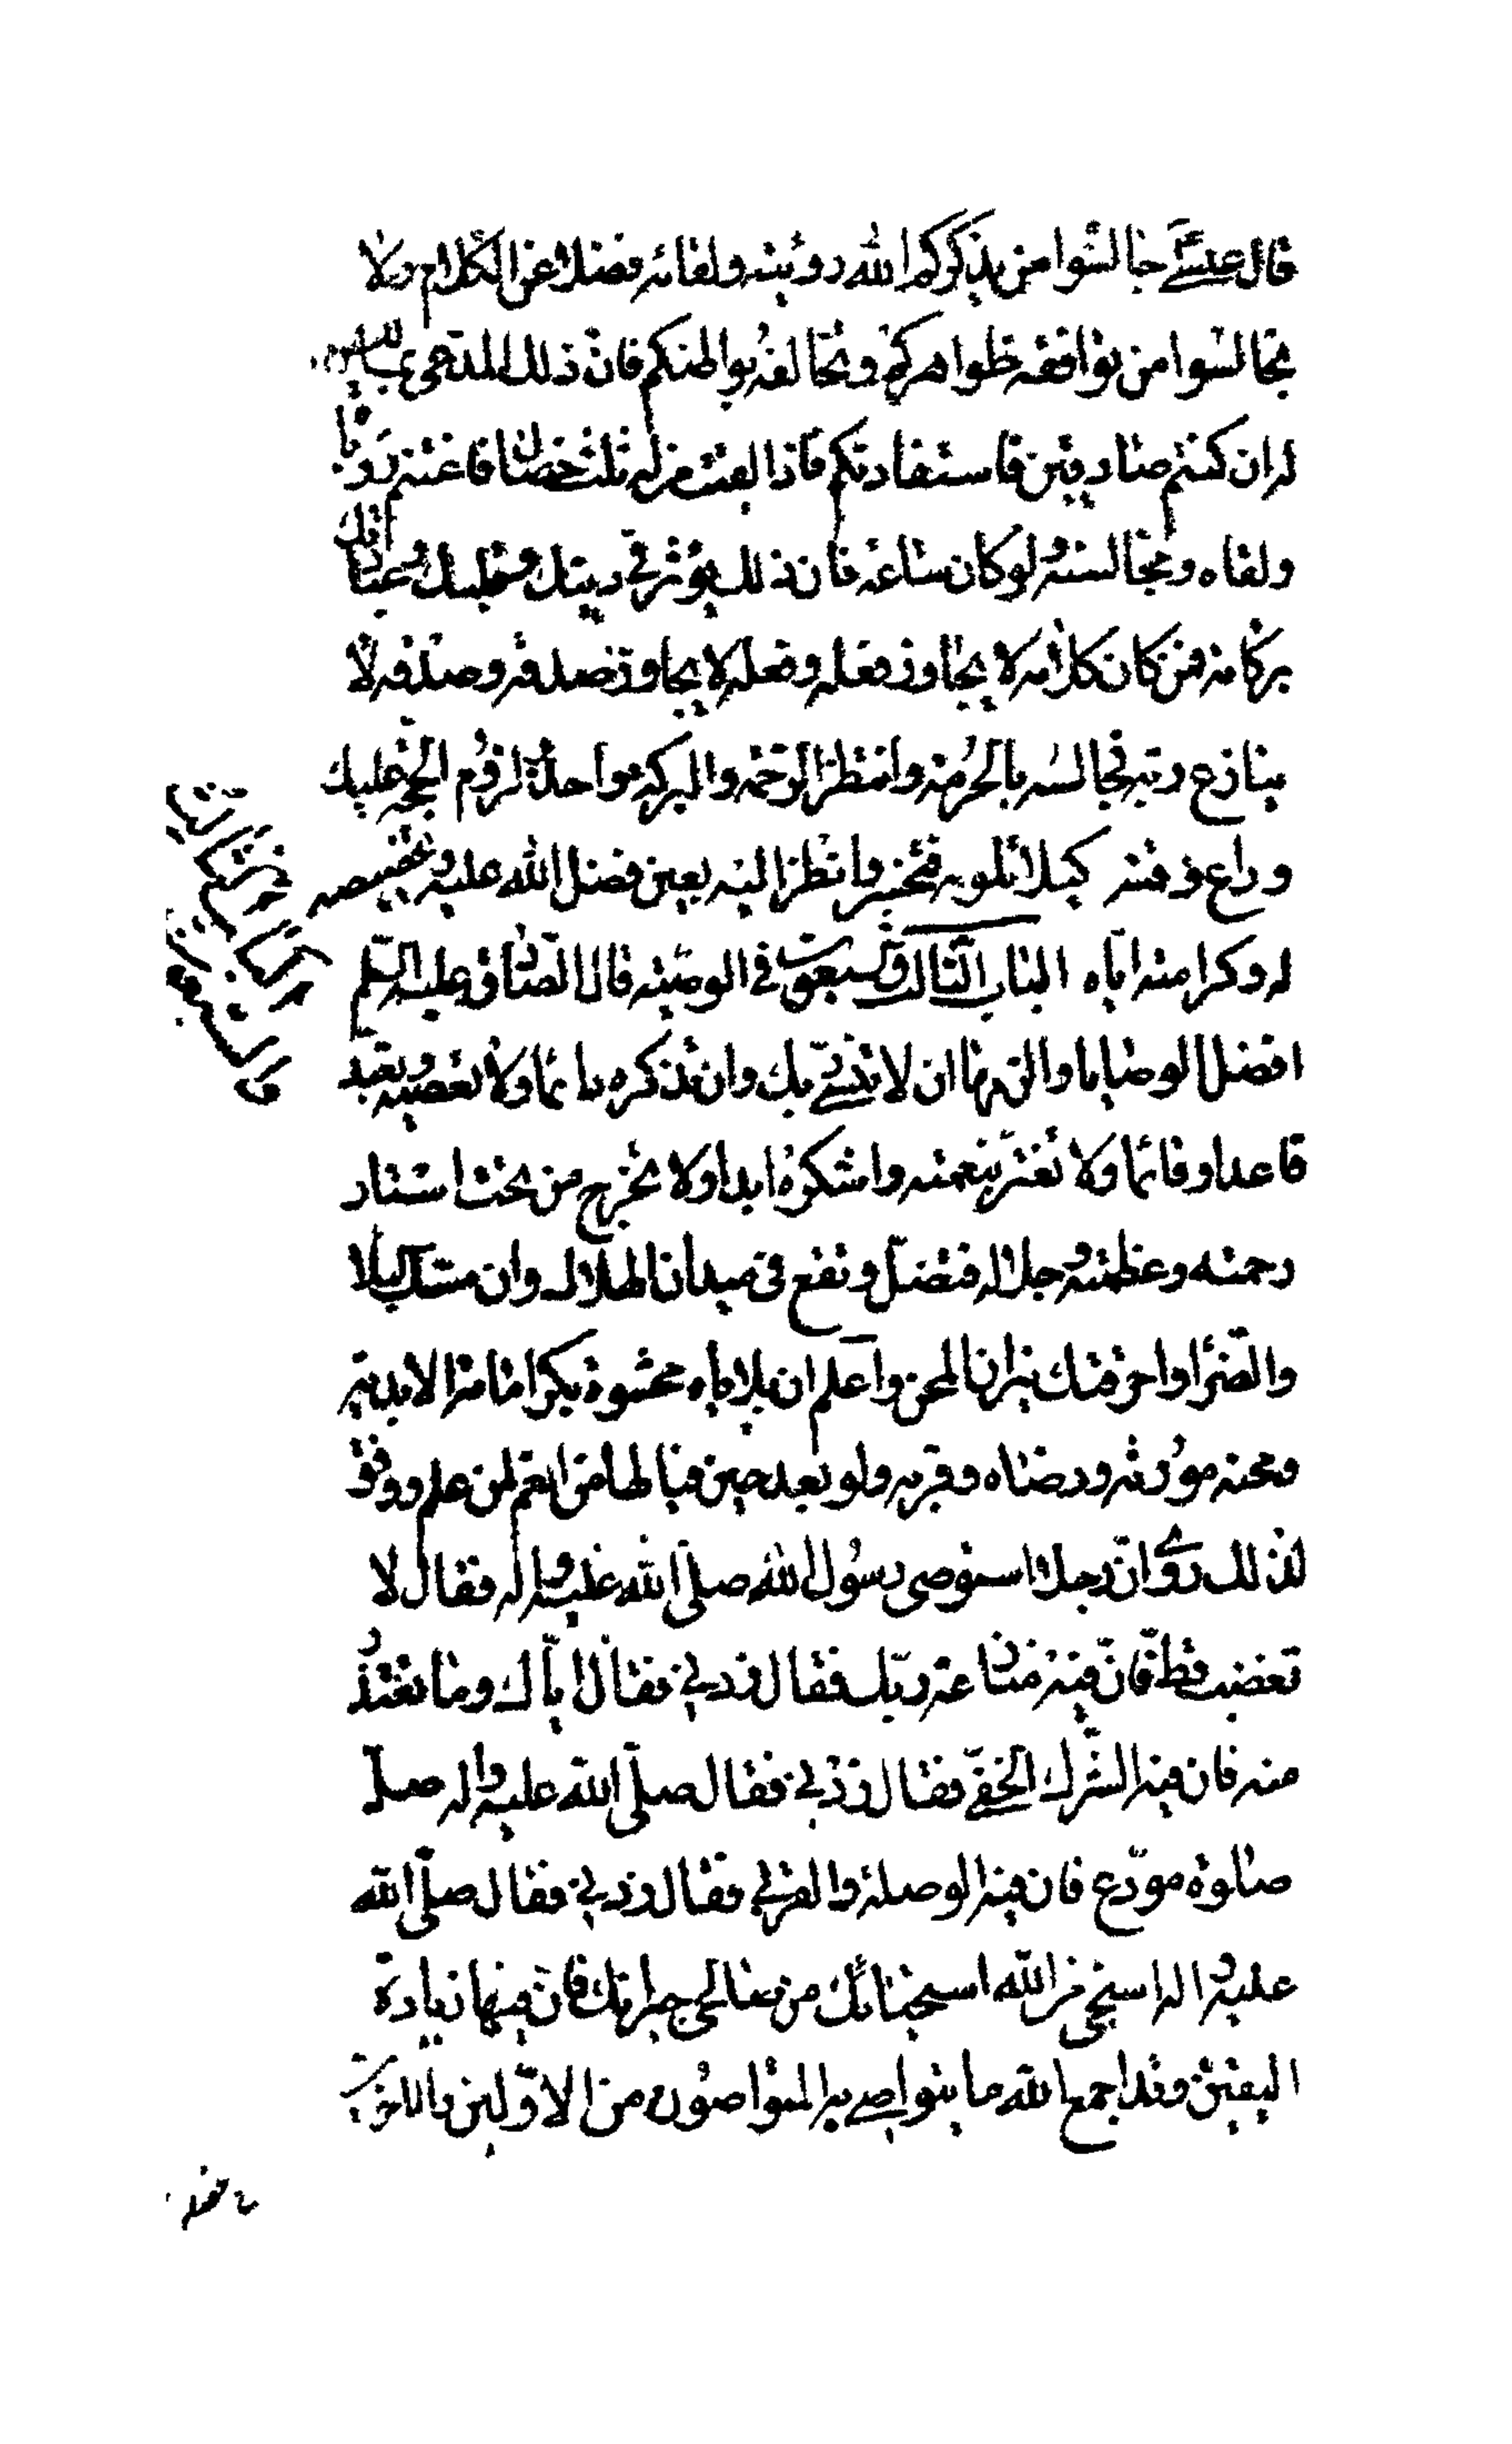 قال عيسى جالسوا من يذكركم الله رؤيته ولقائه فضلا عن الكلام ولا
تجالسوا من يوافقه ظواهركم ويخالفه بواطنكم فان ذلك المدعي بما ليس
له ان كنتم صادقين في استفادتكم فاذا لقيت من له ثلث خصال فاغتنم رؤيته
ولقاه ومجالسته ولو كان ساعة فان ذلك يؤثر في دينك وقلبك وعبادتك
بركاته فمن كان كلامه لا يجاوز فعله وفعله لا يجاوز صدقه وصدقه لا
ينازع ربه فجالسه بالحرمة وانتظر الرحمة والبركة واحذر لزوم الحجة عليك
وراع وقته كيلا تلومه فتخسر وانظر اليه بعين فضل الله عليه وتخصيصه
له وكرامته اياه الباب الثالث والسبعون في الوصية قال الصادق عليه السلم
افضل الوصايا والزمها ان لا تنسى ربك وان تذكره دائما ولا تعصيه وتعبده
قاعدا وقائما ولا تغتر بنعمته واشكره ابدا ولا تخرج من تحت استار
رحمته وعظمته وجلاله فتضل وتقع في ميدان الهلاك وان مسك البلا
والضرا واحرقتك نيران المحن واعلم ان بلاياه محشوة بكراماته الابدية
ومحنه مورثه ورضاه وقربه ولو بعد حين فيا لها من انعم لمن علم ووفق
لذلك روي ان رجلا استوصى رسول الله صلى الله عليه واله فقال لا
تغضب قط فان فيه منازعة ربك فقال زدني فقال اياك وما تعتذر
منه فان فيه الشرك الخفي فقال زدني فقال صلى الله عليه واله صل
صلوة مودع فان فيه الوصلة والقربى فقال زدني فقال صلى الله
عليه واله استحي من الله استحيائك من صالحي جيرانك فان فيها زيادة
اليقين وقد اجمع الله ما يتواصى به المتواصون من الاولين والاخرين